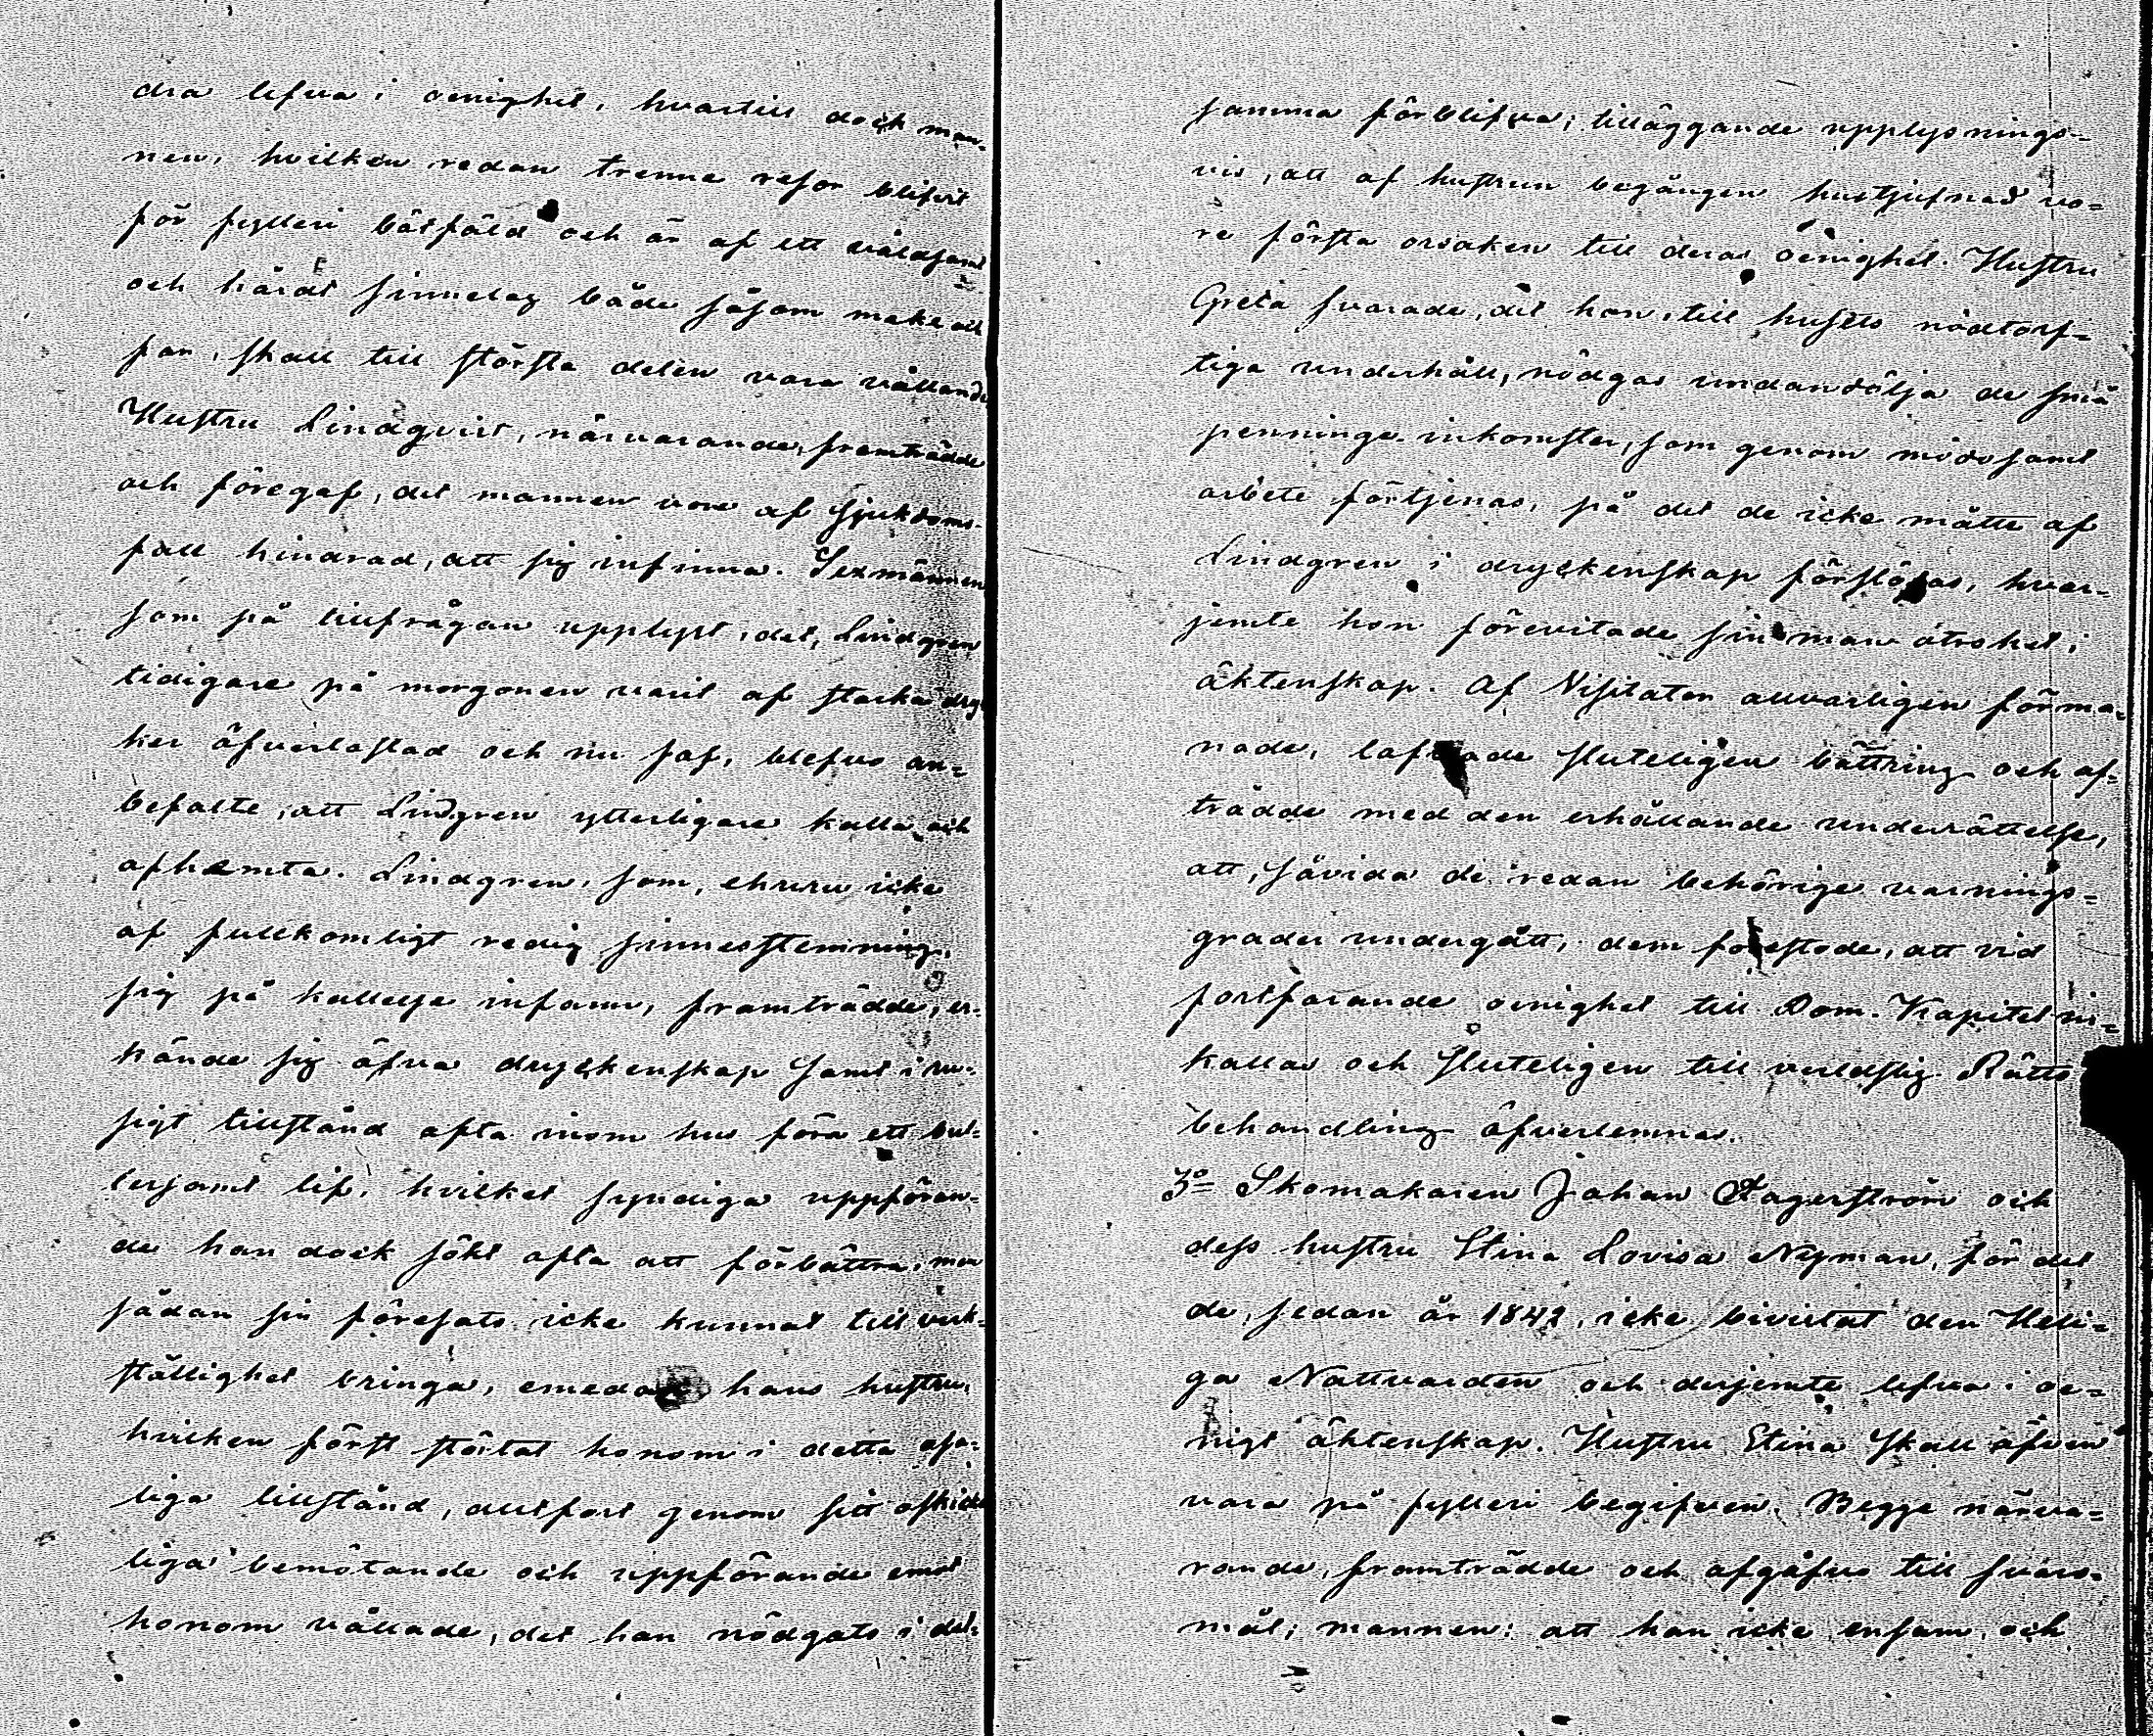 dra lefva i oenighet, hvartill dock man-
nen, hvilken redan trenne resor blifvit
för fylleri bötfäld och är af ett våldsamt
och hårdt sinnelag både såsom make och
far, skall till största delen vara vållande
Hustru Lindqvist, närvarande, framträdde
och föregaf, det mannen vore af sjukdoms-
fall hindrad, att sig infinna. Sexmännen
som på tillfrågan upplyst, det, Lindgren
tidigare på morgonen varit af starka dryc
ker öfverlastad och nu sof, blefvo an=
befalte, att Lindgren ytterligare kalla och
afhæmta. Lindgren, som, ehuru icke
af fullkomligt redig sinnesstemning,
sig på kallelse infann, framträdde, er-
kände sig öfva dryckenskap samt i ru-
sigt tillstånd ofta inom hus föra ett bul-
lersamt lif, hvilket syndiga uppföran-
de han dock sökt ofta att förbättra, men
sådan sin föresats icke kunnat till verk-
ställighet bringa, emedan hans hustru,
hvilken först störtat honom i detta osa-
liga tillstånd, allt fort genom sitt oskick
liga bemötande och uppförande emot
honom vållade, det han nödgats i det-
samma förblifva; tilläggande upplysnings=
vis, att af hustrun begången hustjufnad vo=
re första orsaken till deras oenighet. Hustru
Greta svarade, det hon, till husets nödtorf=
tiga underhåll, nödgas undandölja de små
penninge inkomster, som genom mödosamt
arbete förtjenas, på det de icke måtte af
Lindgren i dryckenskap förslösas, hvar-
jemte hon förevitade sin man otrohet i
äktenskap. Af Visitator allvarligen förma=
nade, lofvade sluteligen bättring och af=
trädde med den erhållande underrättelse,
att, såvida de redan behörige varnings=
grader undergått, dem förestode, att vid
fortfarande oenighet till Dom-Kapitel in=
kallas och sluteligen till verldslig Rätts
behandling öfverlemnas.
3o= Skomakaren Johan Hagerström och
dess hustru Stina Lovisa Nyman, för det
de, sedan år 1842, icke bivistat den Heli=
ga Nattvarden och derjemte lefva i oe=
nigt äktenskap. Hustru Stina skall äfven
vara på fylleri begifven. Begge närva=
rande, framträdde och afgåfvo till svaro-
mål; mannen: att han icke ensam och